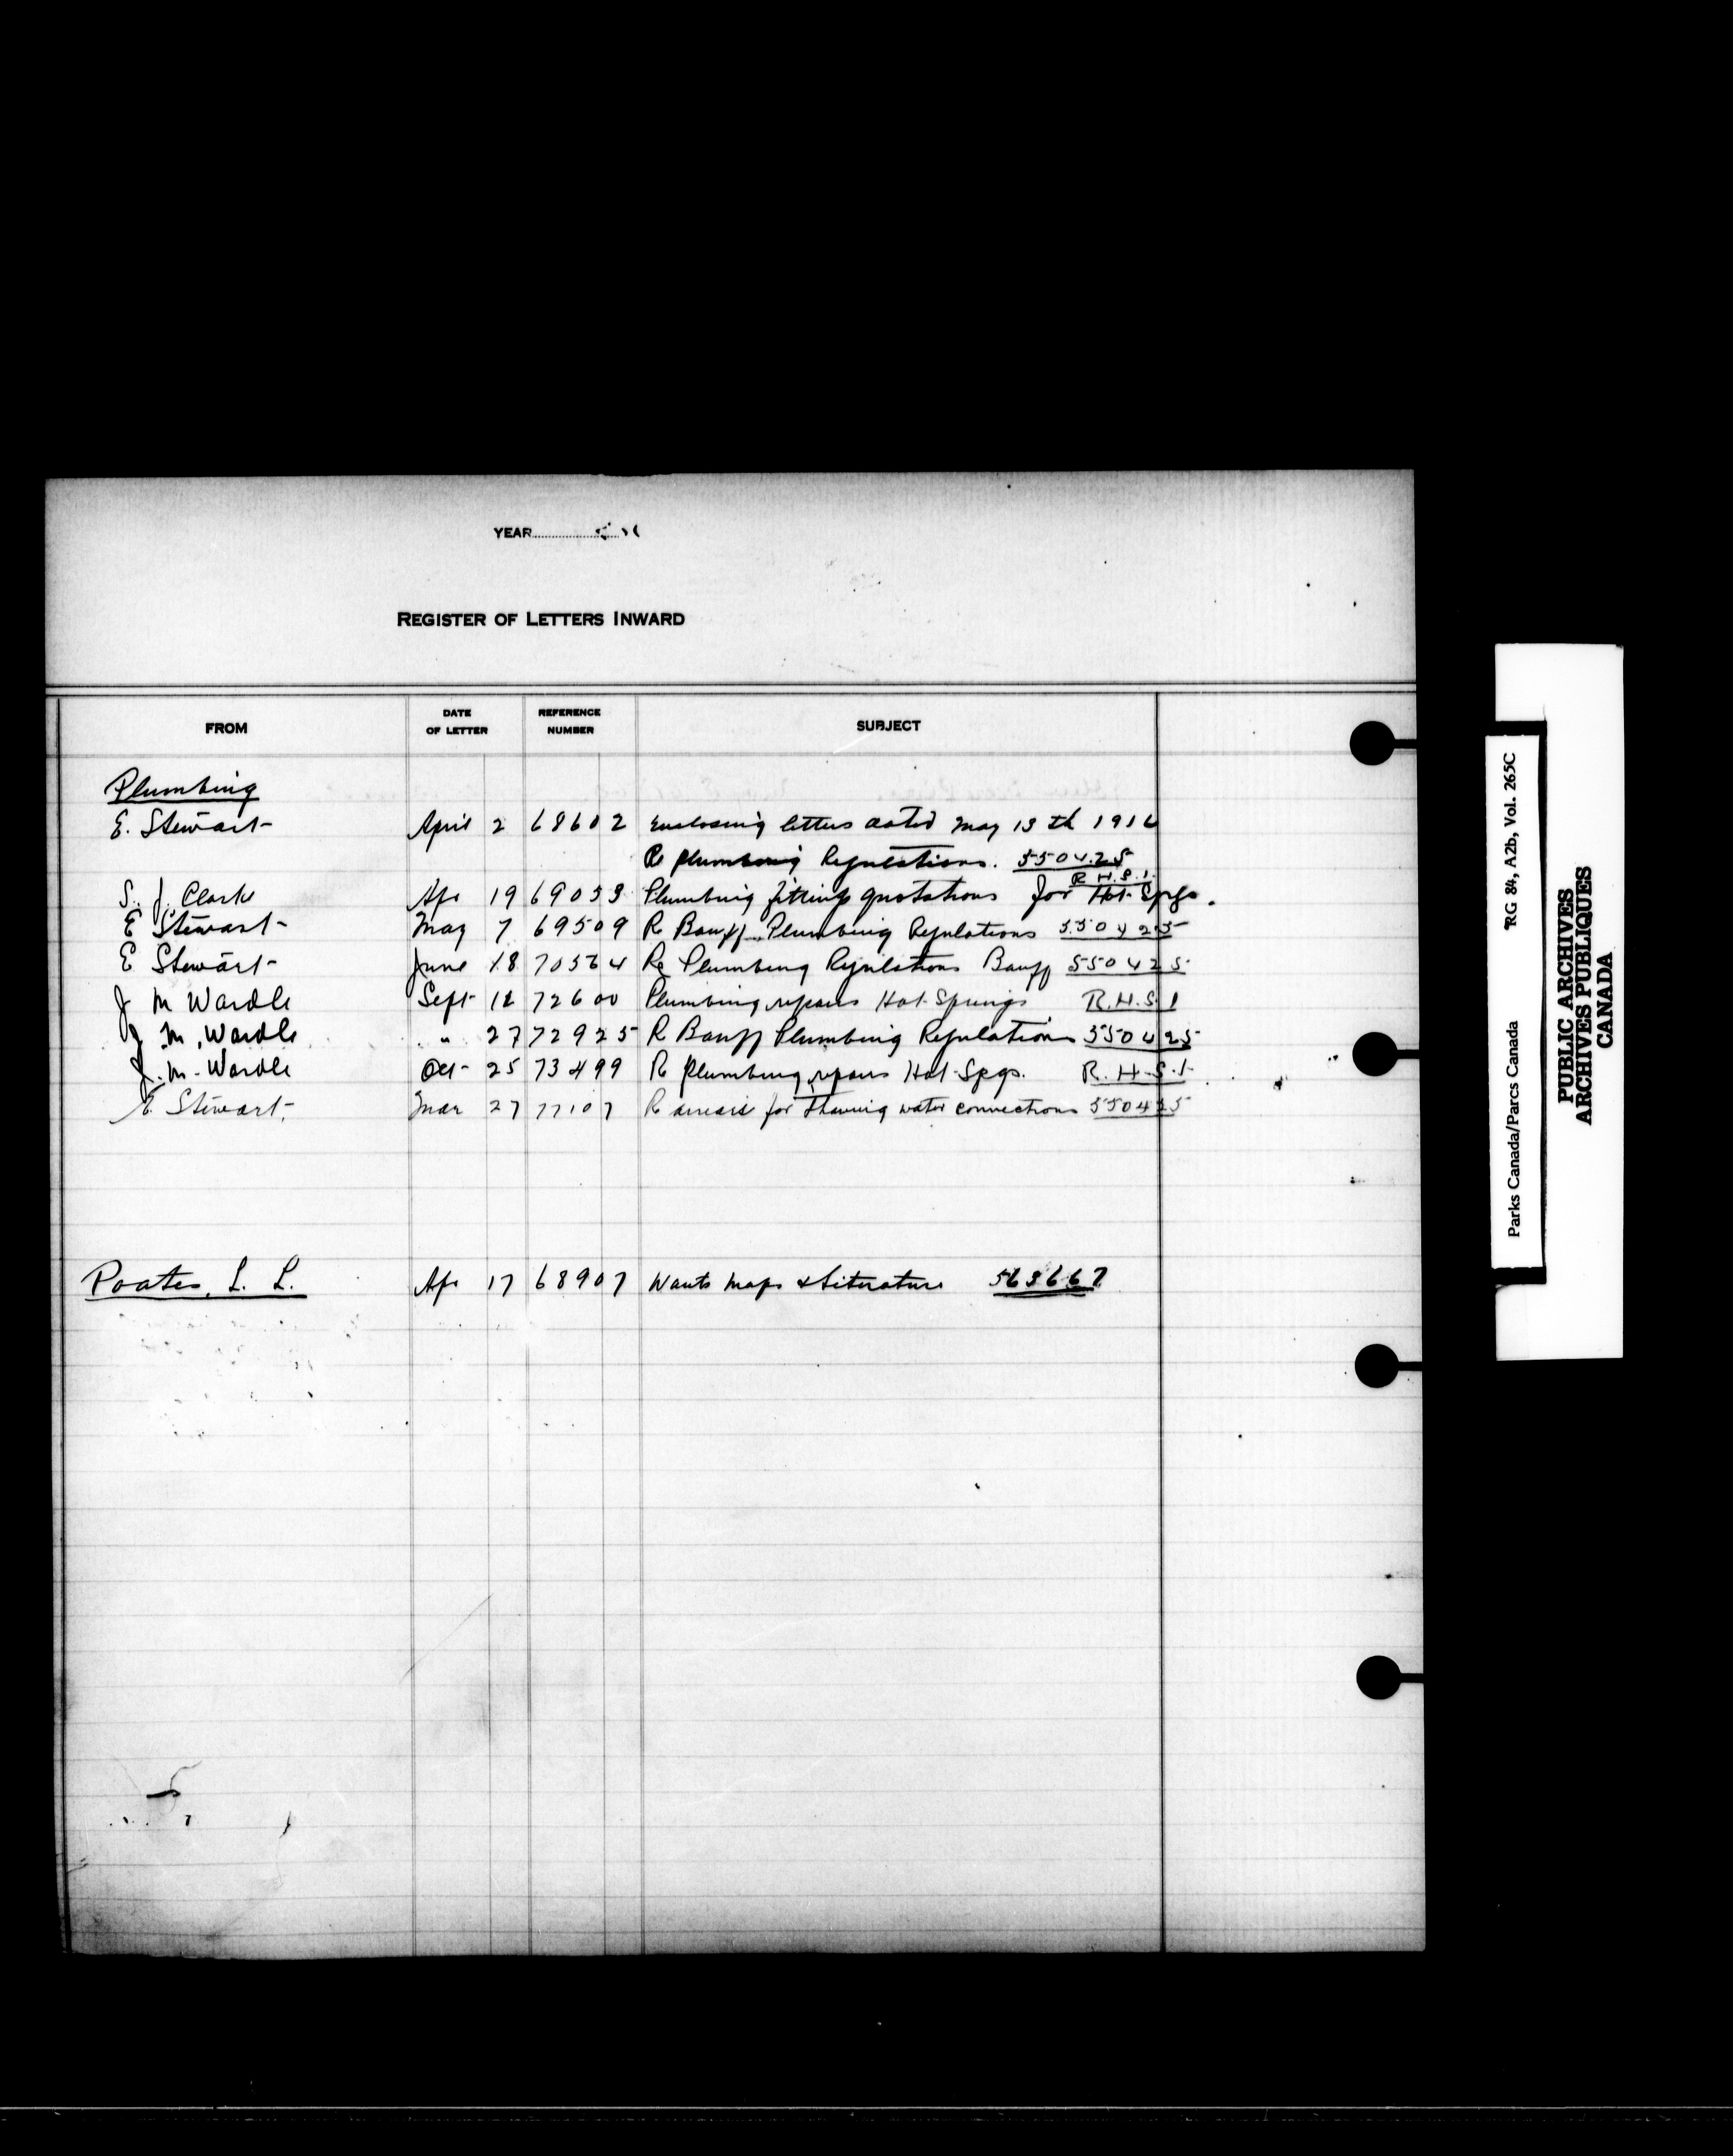 YEAR
REGISTER OF LETTERS INWARD
FROM DATE OF LETTER REFERENCE NUMBER SUBJECT
Plumbing
E. Stewart April 2 68602 Enclosing letters dated May 13th 1916
Re plumbing Regulations. 550425
R.H.S.1.
S. J. Clark Apr 19 69053 Plumbing fittings quotations for Hot Spgs.
E Stewart May 7 69509 R Banff Plumbing Regulations 550425
E Stewart June 18 70564 Re Plumbing Regulations Banff 550425
J M Wardle Sept 12 72600 Plumbing repairs Hot Springs R.H.S.1
J. M. Wardle " 27 72925 R Banff Plumbing Regulations 550425
J. M. Wardle Oct 25 73499 R plumbing repairs Hot Spgs. R.H.S.1.
E. Stewart Mar 27 77107 R arrears for thawing water connections 550425
Poates, L. L. Apr 17 68907 Wants maps & Literature 563667
Parks Canada/Parcs Canada RG 84, A2b, Vol. 265C
PUBLIC ARCHIVES
ARCHIVES PUBLIQUES
CANADA